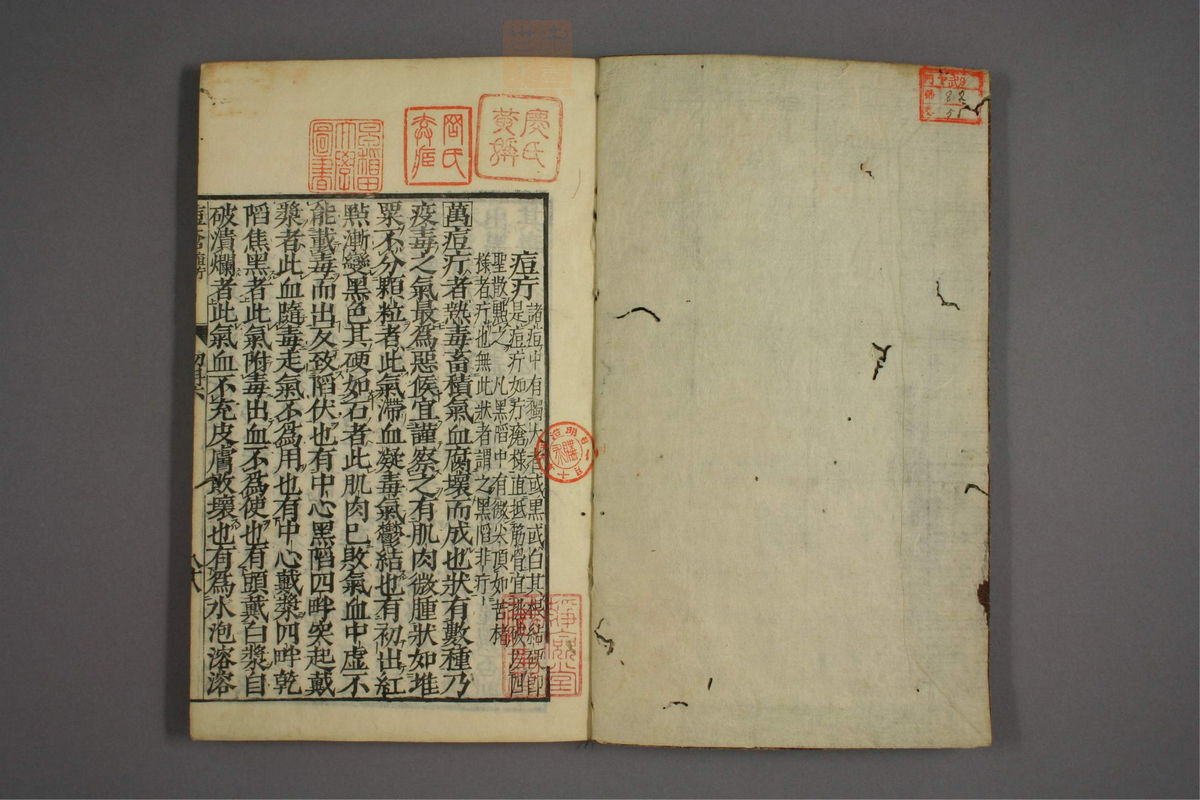 痘疔
諸痘中有獨大者或黒或白其根結硬即
是痘疔如疔瘡樣直抵筋骨宜挑破以四
聖散點之凡黒陷中有微尖頂如苦楮
樣者疔也無此狀者謂之黒陷非疔
萬痘疔者熱毒畜積氣血腐壞而成也狀有數種乃
疫毒之氣最爲惡候宜謹察之有肌肉微腫狀如堆
粟不分顆粒者此氣滯血凝毒氣鬱結也有初出紅
㸃漸變黒色其硬如石者此肌肉已敗氣血中虚不
能載毒而出反致陷伏也有中心黒陷四畔突起戴
漿者此血隨毒走氣不爲用也有中心戴漿四畔乾
陷焦黒者此氣附毒出血不爲使也有頭戴白漿自
破潰爛者此氣血不充皮膚敗壞也有爲水泡溶溶
早稲田
大學
圖書